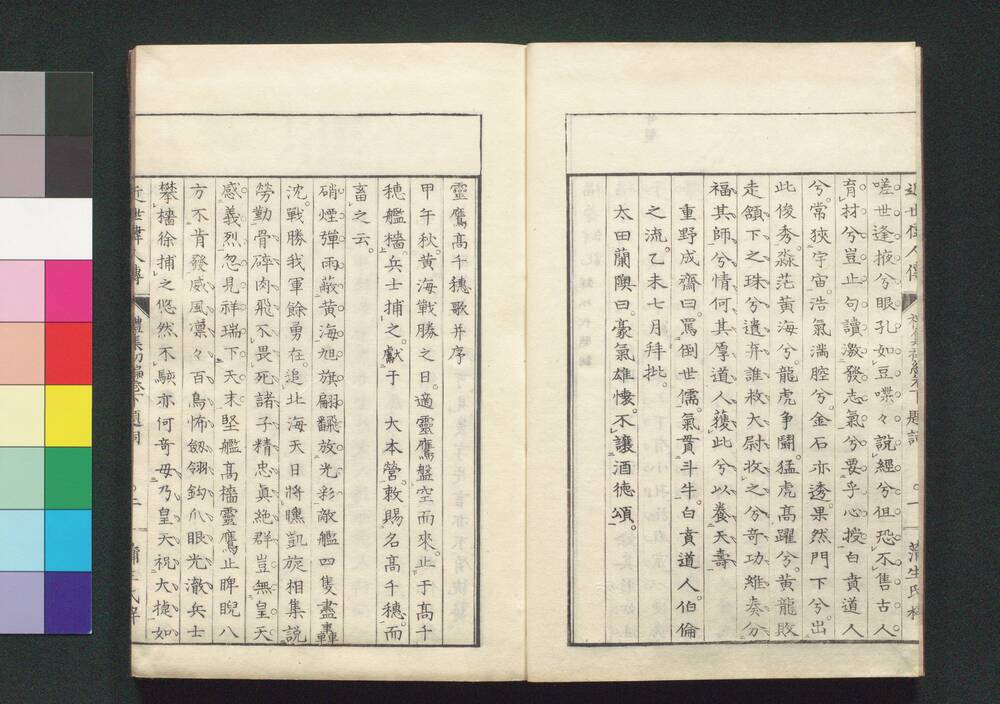 嗟世逢掖兮眼孔如豆喋々說經兮但恐不售古人
育材兮豈止句讀激發志氣兮要乎心授白賁道人
兮常狹宇宙浩氣滿腔兮金石亦透果然門下兮出
此俊秀淼茫黃海兮龍虎爭鬪猛虎高躍兮黃龍敗
走頷下之珠兮遺弃誰救大尉收之兮奇功維奏分
福其師兮情何其厚道人獲此兮以養天壽
重野成齋曰罵倒世儒氣貫斗牛白賁道人伯倫
之流乙未七月拜批
太田蘭隩曰豪氣雄懷不讓酒德頌
靈鷹高千穗歌并序
甲午秋黃海戰勝之日適靈鷹盤空而來止于高千
穗艦檣兵士捕之獻于　大本營敕賜名高千穗而
畜之云
硝煙彈雨蔽黃海旭旗翩翻放光彩敵艦四隻盡轟
沈戰勝我軍餘勇在追北海天日將曛凱旋相集說
勞勤骨碎肉飛不畏死諸子精忠眞絕群豈無皇天
感義烈忽見祥瑞下天末堅艦高檣靈鷹止睥睨八
方不肯發威風凛々百鳥怖劔翎鉤爪眼光澈兵士
攀檣徐捕之悠然不駭亦何奇毋乃皇天祝大捷如